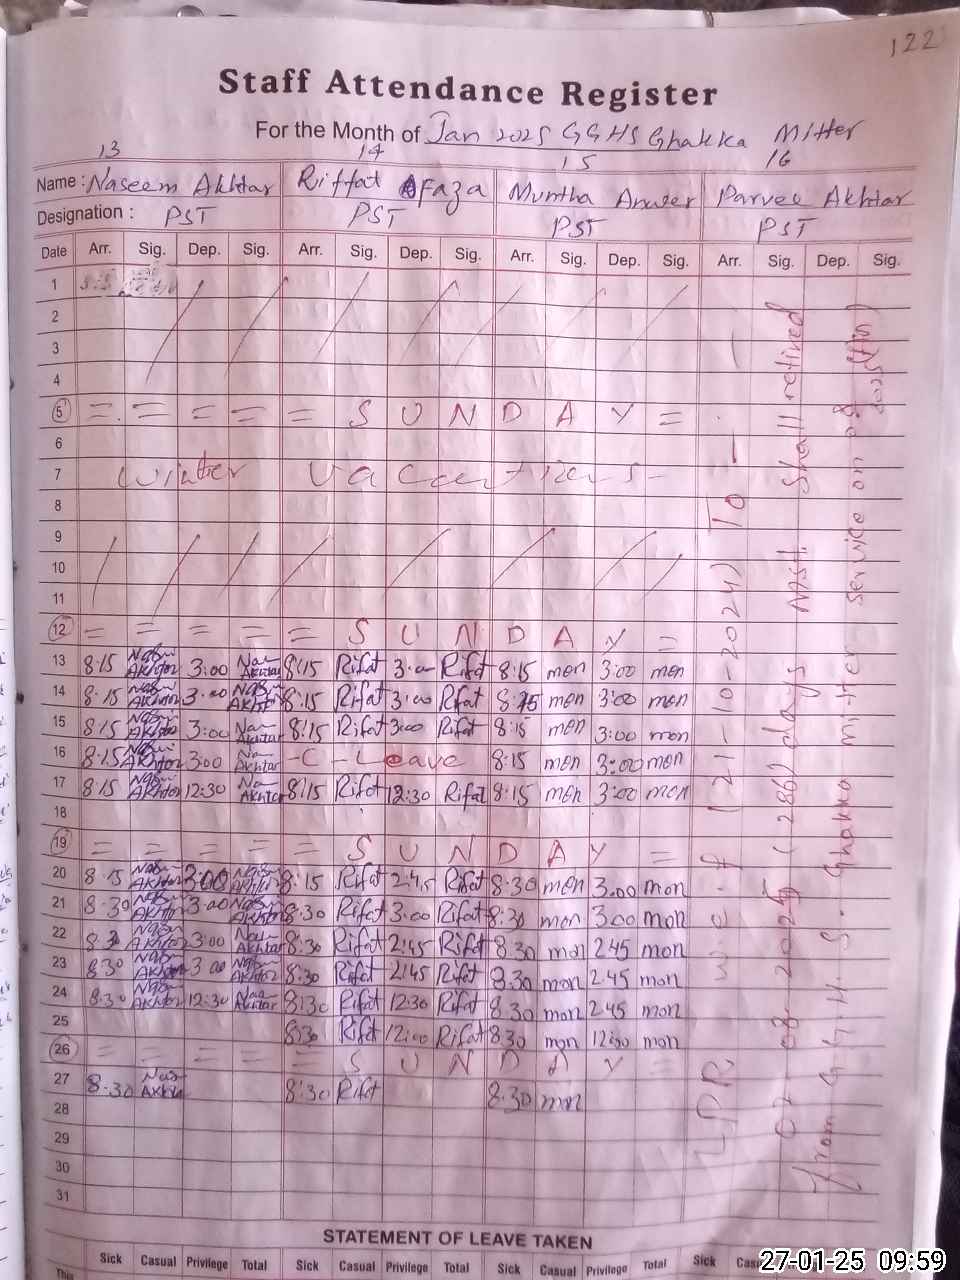 122
Staff Attendance Register
For the Month of Jan 2025 GGHS Ghakka Mitter
13 14 15 16
Name : Naseem Akhtar Riffat Afaza Muntha Anwer Parvee Akhtar
Designation : PST PST PST PST
Date Arr. Sig. Dep. Sig. Arr. Sig. Dep. Sig. Arr. Sig. Dep. Sig. Arr. Sig. Dep. Sig.
1
2
3
4
5 = = = = = S U N D A Y =
6
7 Winter Vaccations
8
9
10
11
12 = = = = = S U N D A Y =
13 8:15 Akhtar 3:00 Akhtar 8:15 Rifat 3:00 Rifat 8:15 mon 3:00 mon
14 8:15 Akhtar 3:00 Akhtar 8:15 Rifat 3:00 Rifat 8:15 mon 3:00 mon
15 8:15 Akhtar 3:00 Akhtar 8:15 Rifat 3:00 Rifat 8:15 mon 3:00 mon
16 8:15 Akhtar 3:00 Akhtar - C - Leave 8:15 mon 3:00 mon
17 8:15 Akhtar 12:30 Akhtar 8:15 Rifat 12:30 Rifat 8:15 mon 3:00 mon
18
19 = = = = = S U N D A Y =
20 8:15 Akhtar 3:00 Akhtar 8:15 Rifat 2:45 Rifat 8:30 mon 3.00 mon
21 8:30 Akhtar 3:00 Akhtar 8:30 Rifat 3:00 Rifat 8:30 mon 3.00 mon
22 8:30 Akhtar 3:00 Akhtar 8:30 Rifat 2:45 Rifat 8.30 mon 2.45 mon
23 8:30 Akhtar 3:00 Akhtar 8:30 Rifat 2:45 Rifat 8.30 mon 2.45 mon
24 8:30 Akhtar 12:30 Akhtar 8:30 Rifat 12:30 Rifat 8.30 mon 2.45 mon
25 8:30 Rifat 12:00 Rifat 8.30 mon 12:30 mon
26 = = = = = S U N D A Y =
27 8.30 8:30 Rifat 8.30 mon
28
29
30
31
LPR w.e.f (21-10-2024) To
02-08-2025 (286) days Mst. Shall retired
from G.G.H.S. Ghakka mitter service on 08
2025 (Fn)
STATEMENT OF LEAVE TAKEN
This Sick Casual Privilege Total Sick Casual Privilege Total Sick Casual Privilege Total Sick
27-01-25 09:59